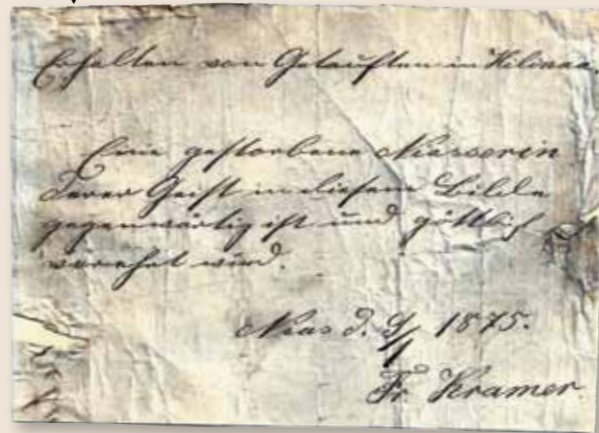 Erhalten von Getauften in Hilinaa.
Eine gestorbene Niasserin
deren Geist in diesem Bilde
gegenwärtig ist und göttlich
verehrt wird.
Nias d. 9/1 1875.
Fr. Kramer.